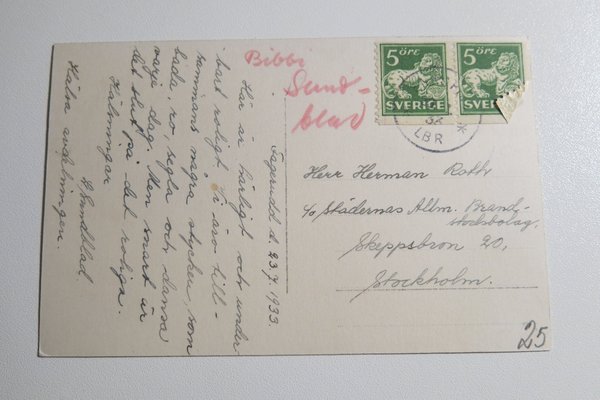 Fagerudd d. 23/7 1933.
Här är härligt och under-
bart roligt. Vi äro till-
sammans några stycken, som
bada, ro, segla och dansa
varje dag. Men snart är
det slut på det roliga.
Hälsningar
Sundblad.
Hälsa avdelningen.
Bibbi
Sund-
blad
5 ÖRE
SVERIGE
5 ÖRE
SVERIGE
LBR
Herr Herman Roth
c/o Städernas Allm. Brand-
stodsbolag,
Skeppsbron 20,
Stockholm.
25